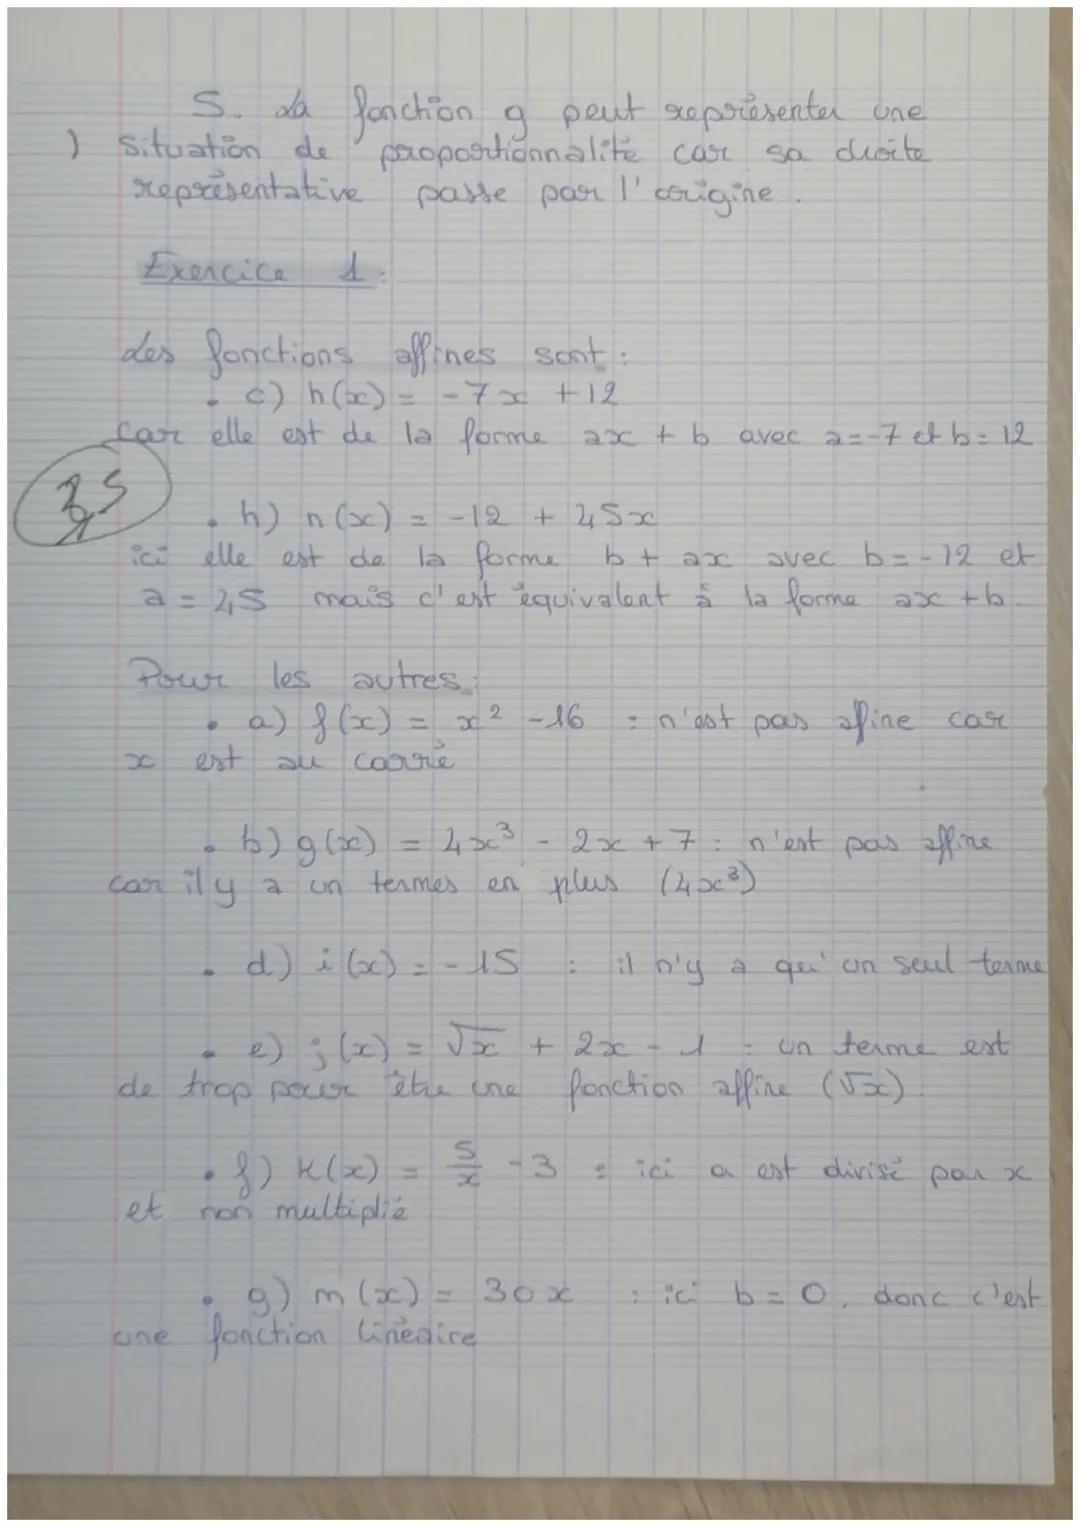 5. La fonction g peut représenter une
) situation de proportionnalité car sa droite
représentative passe par l'origine.
Exercice 1:
Les fonctions affines sont :
• c) h(x) = -7x + 12
Car elle est de la forme ax + b avec a=-7 et b= 12
3,5
• h) n(x) = -12 + 4,5x
ici elle est de la forme b + ax avec b=-12 et
a = 4,5 mais c'est équivalent à la forme ax +b.
Pour les autres:
• a) f(x) = x² -16 : n'est pas afine car
x est au carré
• b) g(x) = 4x³ - 2x + 7 : n'est pas affine
car il y a un termes en plus (4x³)
• d) i(x) = -15 : il n'y a qu'un seul terme
• e) j(x) = √x + 2x - 1 : un terme est
de trop pour être une fonction affine (√x)
• f) K(x) = 5/x -3 : ici a est divisé par x
et non multiplié
• g) m(x) = 30x : ici b = 0, donc c'est
une fonction linéaire